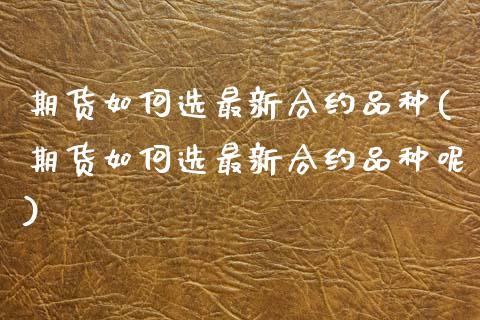 期货如何选最新合约品种(
期货如何选最新合约品种呢
)